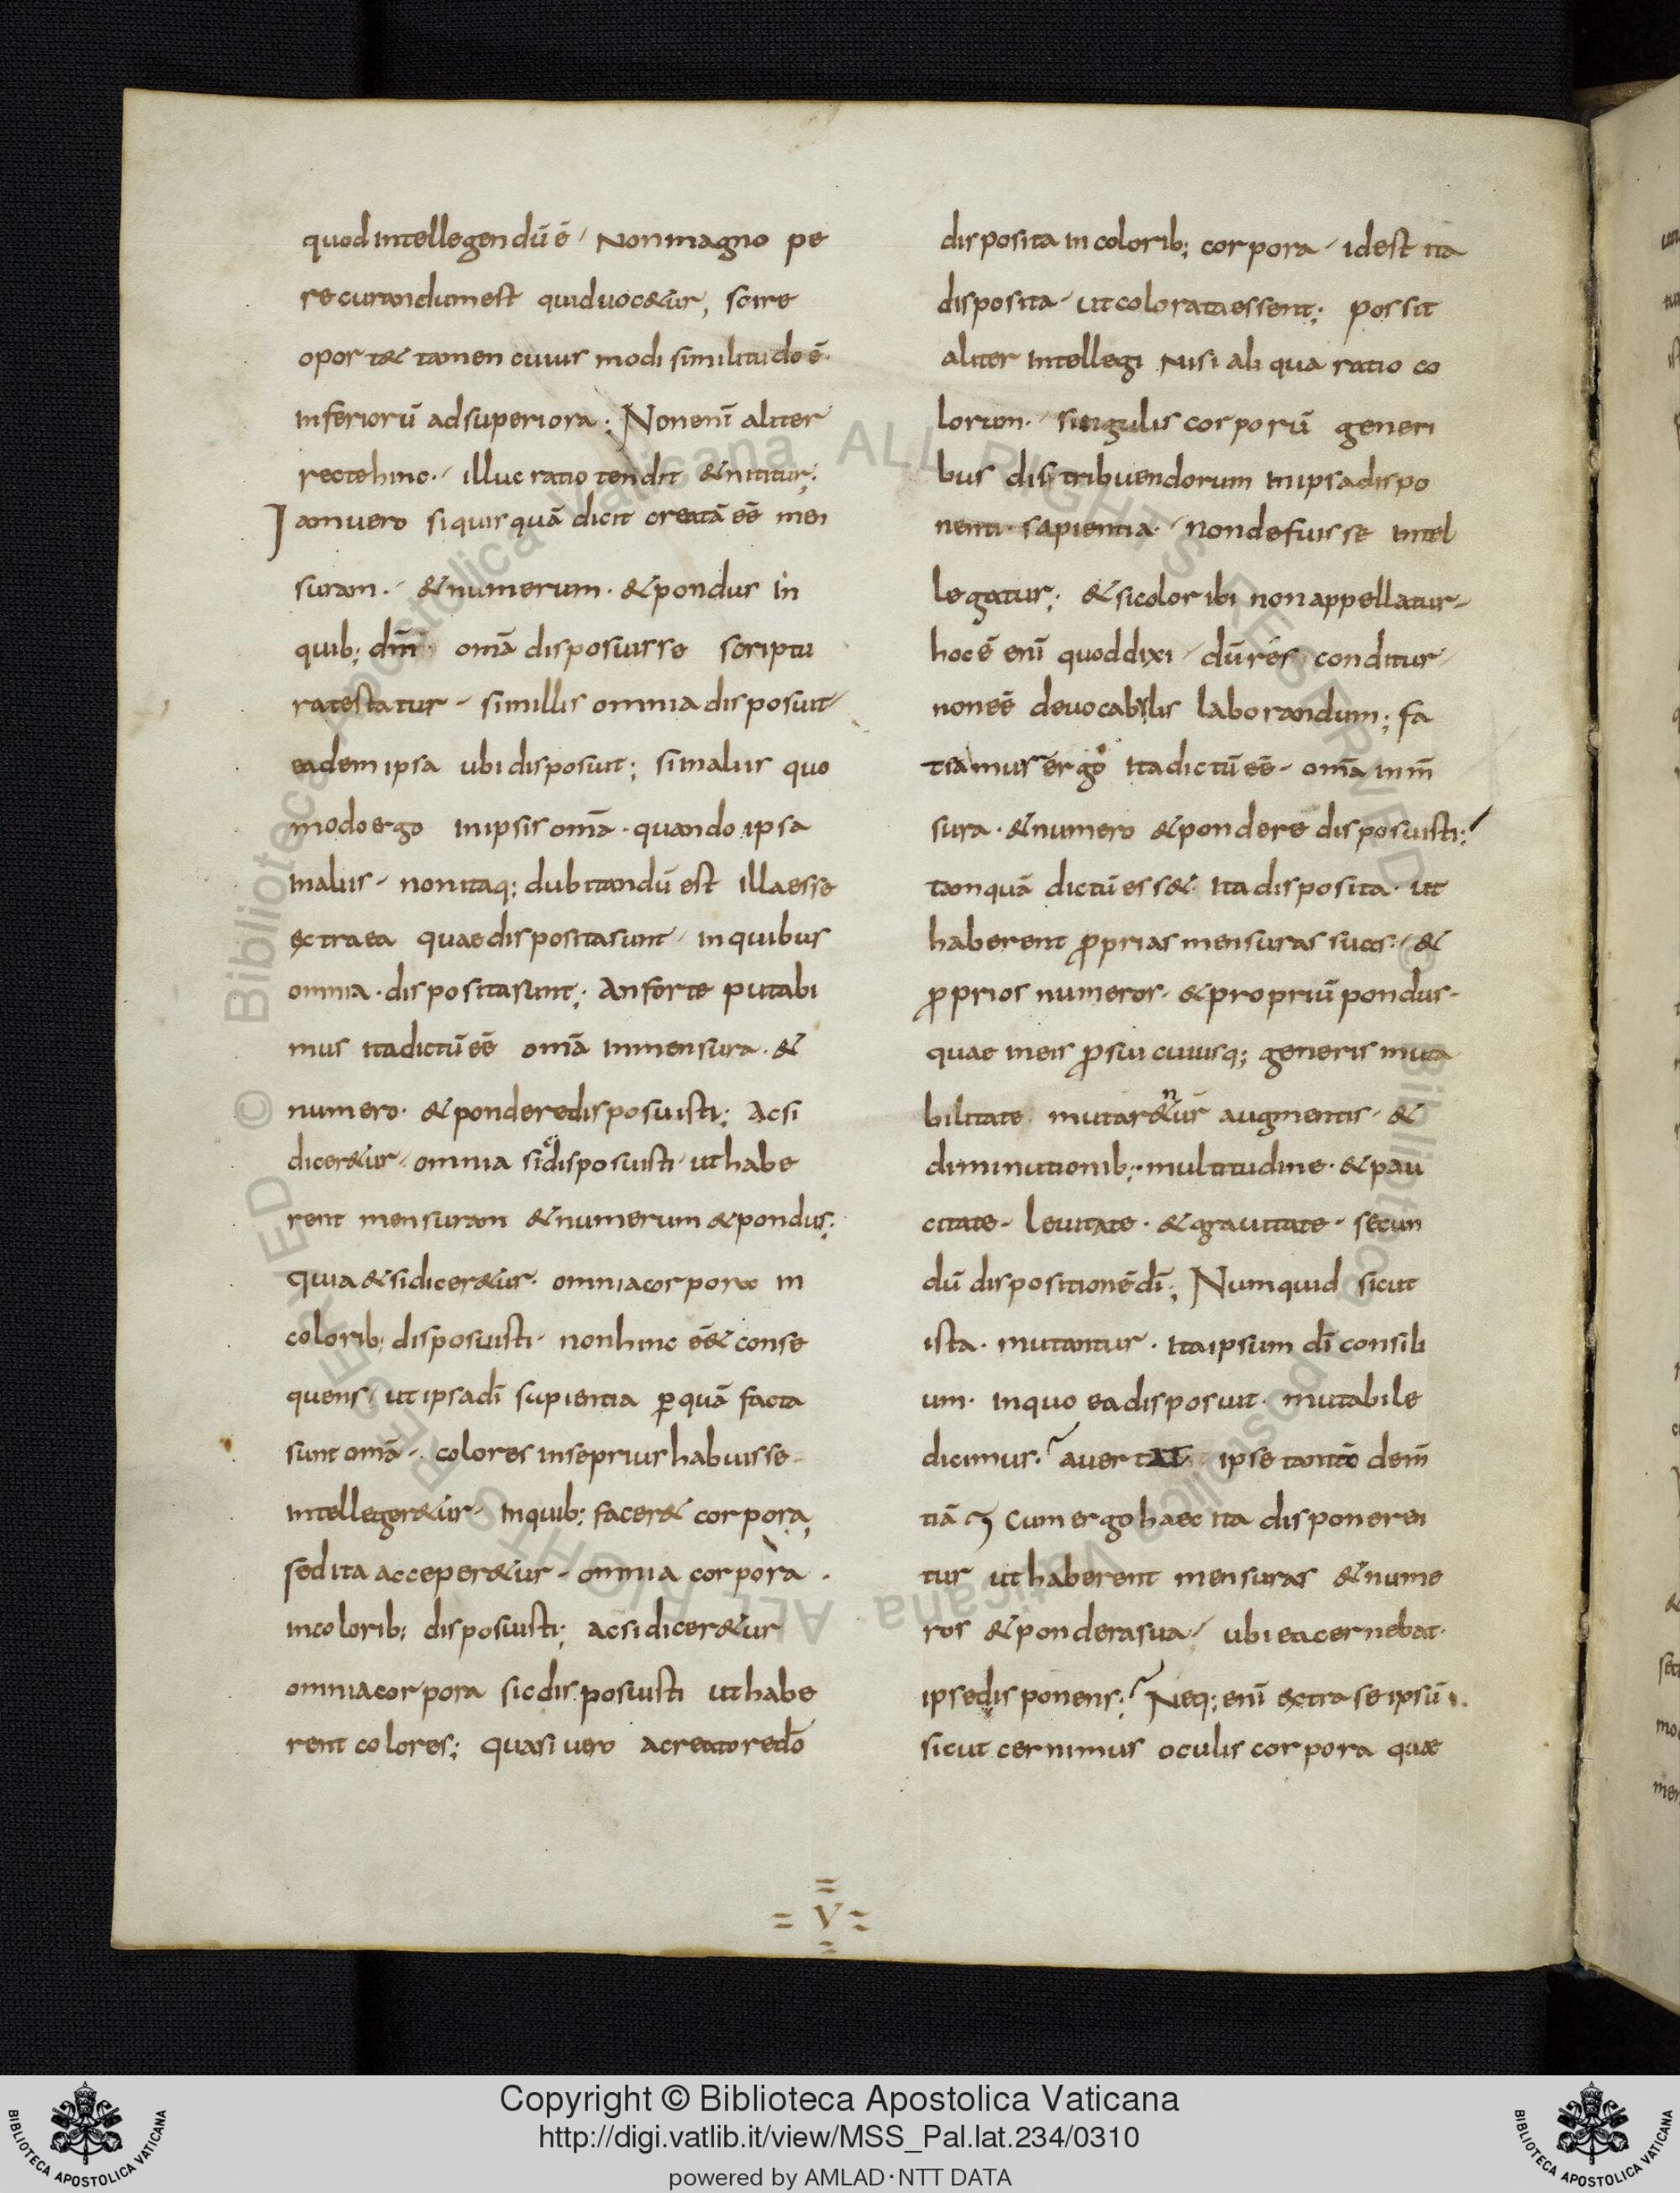 quod intellegendū ē, Non magno pe
re curandum est quid uocetur, scire
oportet tamen cuius modi similitudo ē
inferiorū ad superiora; Non enī aliter
recte hinc illuc ratio tendit & nititur;
Iam uero si quisquā dicit creatā eē men
suram. & numerum. & pondus in
quib; dm̄ om̄a disposuisse scriptu
ra testatur, si in illis omnia disposuit
eadem ipsa ubi disposuit; si in aliis quo
modo ergo in ipsis om̄a. quando ipsa
in aliis, non itaq; dubitandū est illa esse
extra ea quae disposita sunt, in quibus
omnia. disposita sunt; An forte putabi
mus ita dictū eē om̄a in mensura. &
numero. & pondere disposuisti; Ac si
dicer&ur, omnia sic disposuisti ut habe
rent mensuram & numerum & pondus;
quia & si dicer&ur. omnia corpora in
colorib; disposuisti. non hinc eē& conse
quens, ut ipsa dī supientia ꝑ quā facta
sunt om̄a, colores in se prius habuisse
intelleger&ur, in quib; facer& corpora,
sed ita acceper&ur, omnia corpora.
in colorib; disposuisti; ac si dicer&ur
omnia corpora sic disposuisti ut habe
rent colores; quasi uero a creatore dō
disposita in colorib; corpora, id est ita
disposita, ut colorata essent; possit
aliter intellegi nisi aliqua ratio co
lorum. singulis corporū generi
bus distribuendorum in ipsa dispo
nenti. sapientia. non defuisse intel
legatur; & si color ibi non appellatur,
hoc ē enī quod dixi, dū res conditur,
non eē de uocabulis laborandum; fa
tiamus ergo ita dictū eē, om̄a in m̄
sura. & numero & pondere disposuisti;
tamquā dictū ess& ita disposita. ut
haberent ꝓprias mensuras suas. &
ꝓprios numeros. & propriū pondus.
quae in eis ꝓ sui cuiusq; generis muta
bilitate mutarentur augmentis. &
diminutionib; multitudine. & pau
citate, leuitate. & grauitate, secun
dū dispositionē dī; Numquid sicut
ista. mutantur. ita ipsum dī consili
um. in quo ea disposuit. mutabile
dicimus; auertat ipse tantā dem̄
tiā; Cum ergo haec ita disponeren
tur ut haberent mensuras & nume
ros & pondera sua, ubi ea cernebat
ipse disponens; Neq; enī extra se ipsū.
sicut cernimus oculis corpora quæ
= V =
Copyright © Biblioteca Apostolica Vaticana
http://digi.vatlib.it/view/MSS_Pal.lat.234/0310
powered by AMLAD·NTT DATA
BIBLIOTECA APOSTOLICA VATICANA
BIBLIOTECA APOSTOLICA VATICANA